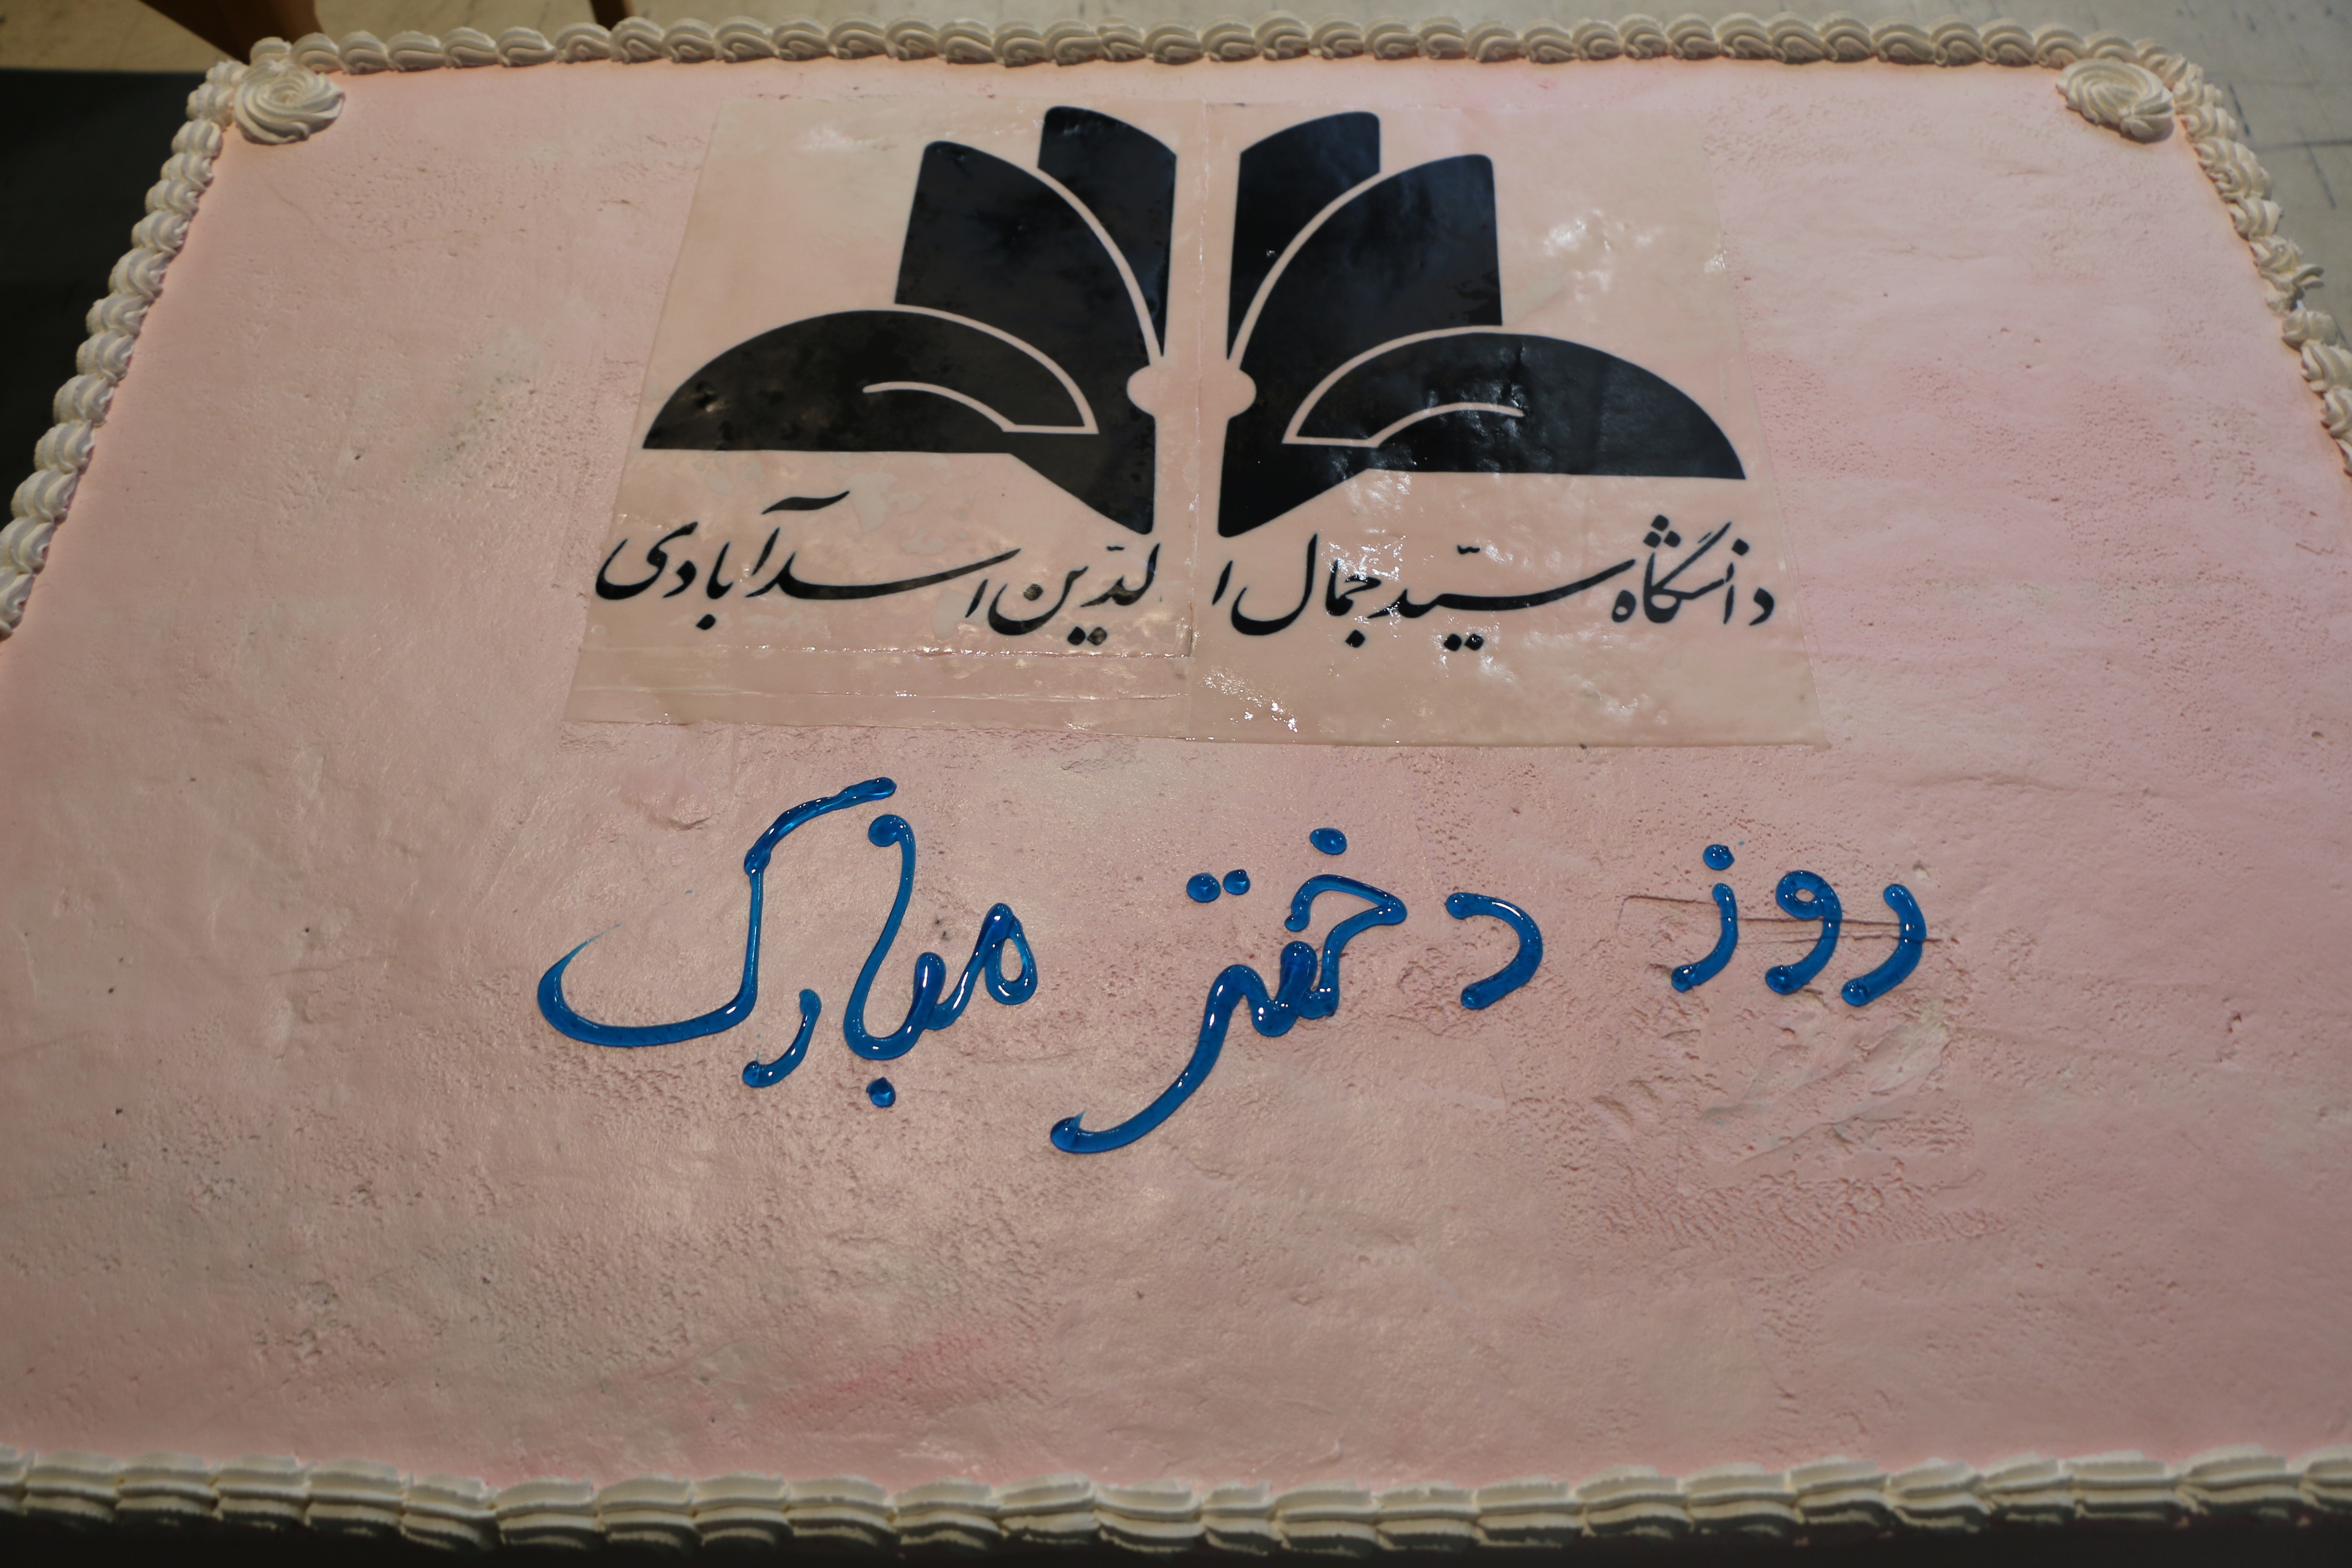 دانشگاه سیّد جمال الدّین اسدآبادی
روز دختر مبارک